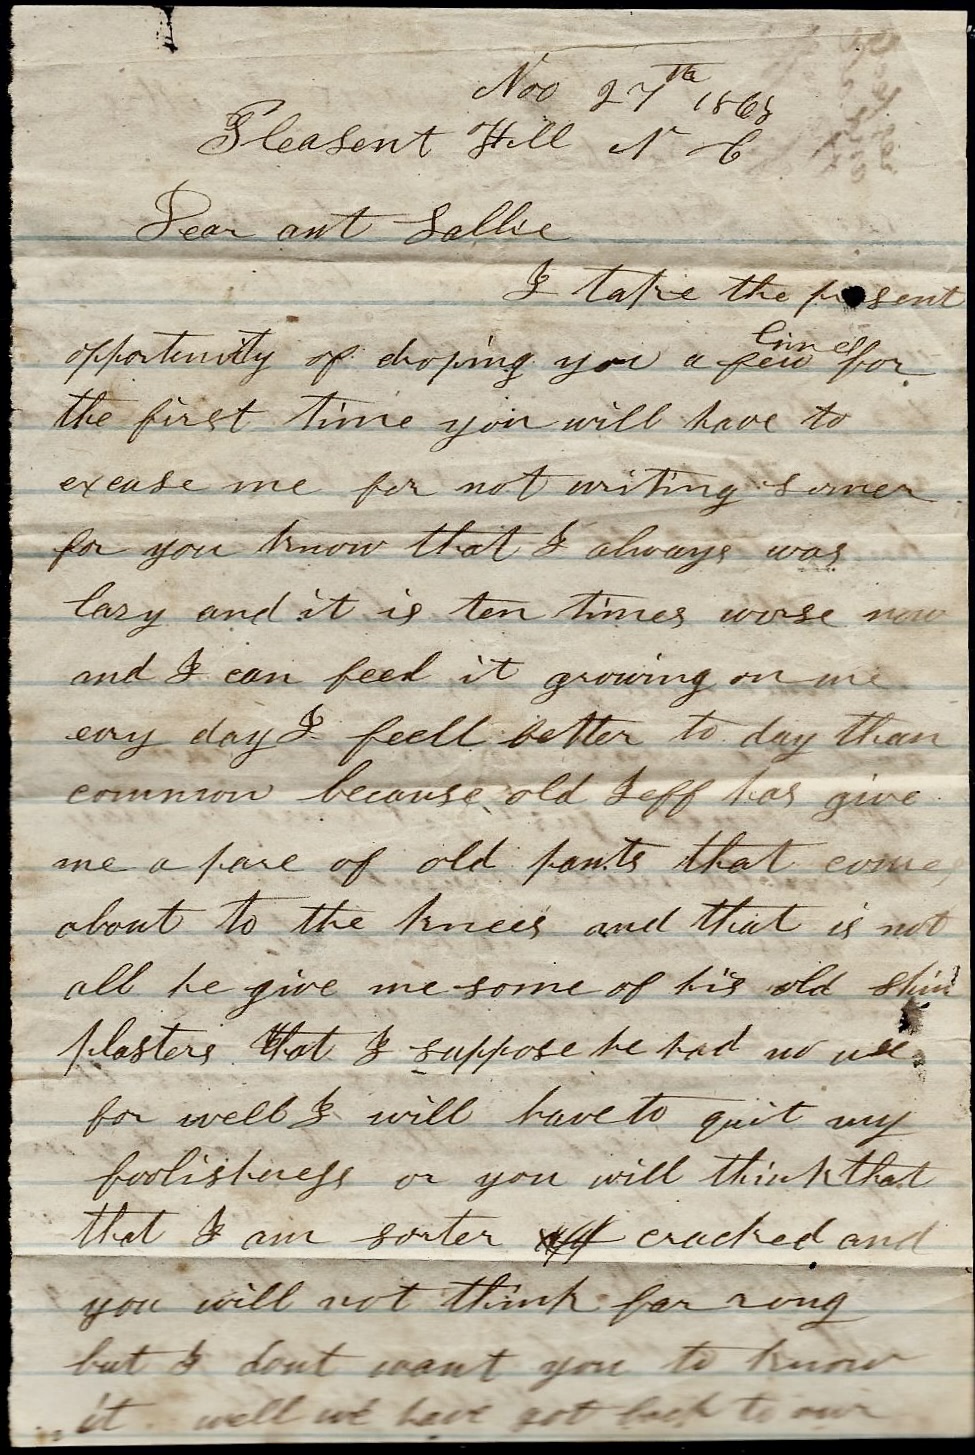 Nov 27th 1863
Pleasent Hill N C
Dear ant Sallie
I take the present
opportunity of droping you a few lines for
the first time you will have to
excuse me for not writing sooner
for you know that I always was
lazy and it is ten times worse now
and I can feel it growing on me
evry day I feell better to day than
common because old Jeff has give
me a pare of old pants that come
about to the knees and that is not
all he give me some of his old shin
plasters that I suppose he had no use
for well I will have to quit my
foolishness or you will think that
that I am sorter cracked and
you will not think far rong
but I dont want you to know
it well we have got back to our